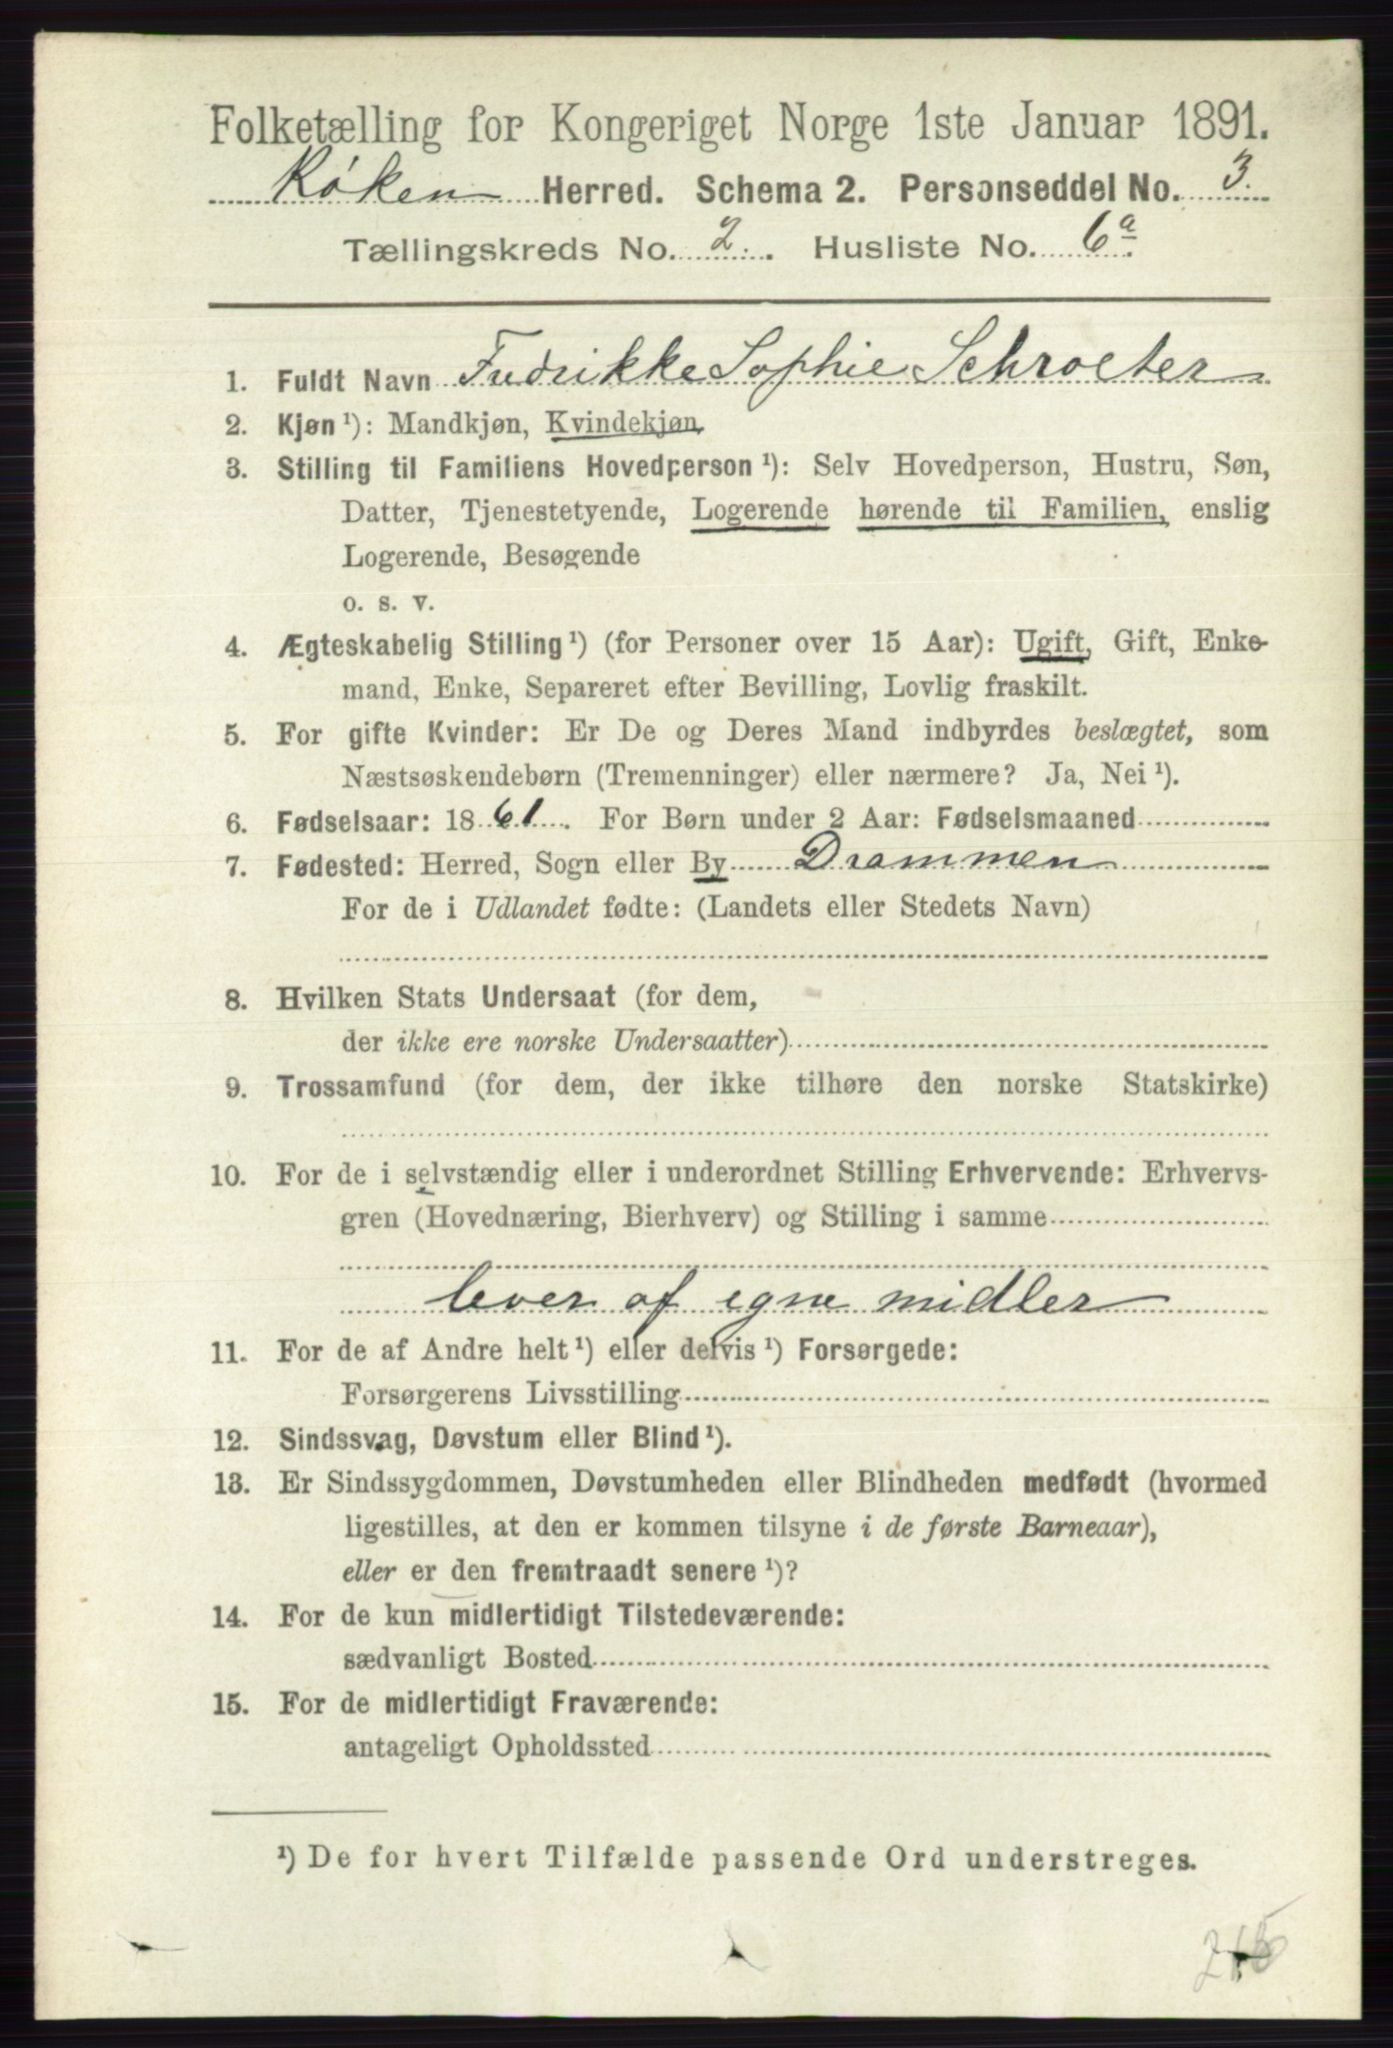 Folketælling for Kongeriget Norge 1ste Januar 1891.
Røken Herred. Schema 2. Personseddel No. 3.
Tællingskreds No. 2. Husliste No. 6a.
1. Fuldt Navn Fredrikke Sophie Schroeter
2. Kjøn ¹): Mandkjøn, Kvindekjøn.
3. Stilling til Familiens Hovedperson ¹): Selv Hovedperson, Hustru, Søn,
Datter, Tjenestetyende, Logerende hørende til Familien, enslig
Logerende, Besøgende
o. s. v.
4. Ægteskabelig Stilling ¹) (for Personer over 15 Aar): Ugift, Gift, Enke-
mand, Enke, Separeret efter Bevilling, Lovlig fraskilt.
5. For gifte Kvinder: Er De og Deres Mand indbyrdes beslægtet, som
Næstsøskendebørn (Tremenninger) eller nærmere? Ja, Nei ¹).
6. Fødselsaar: 1861. For Børn under 2 Aar: Fødselsmaaned
7. Fødested: Herred, Sogn eller By Drammen
For de i Udlandet fødte: (Landets eller Stedets Navn)
8. Hvilken Stats Undersaat (for dem,
der ikke ere norske Undersaatter)
9. Trossamfund (for dem, der ikke tilhøre den norske Statskirke)
10. For de i selvstændig eller i underordnet Stilling Erhvervende: Erhvervs-
gren (Hovednæring, Bierhverv) og Stilling i samme
lever af egne midler
11. For de af Andre helt ¹) eller delvis ¹) Forsørgede:
Forsørgerens Livsstilling
12. Sindssvag, Døvstum eller Blind ¹).
13. Er Sindssygdommen, Døvstumheden eller Blindheden medfødt (hvormed
ligestilles, at den er kommen tilsyne i de første Barneaar),
eller er den fremtraadt senere ¹)?
14. For de kun midlertidigt Tilstedeværende:
sædvanligt Bosted
15. For de midlertidigt Fraværende:
antageligt Opholdssted
¹) De for hvert Tilfælde passende Ord understreges.